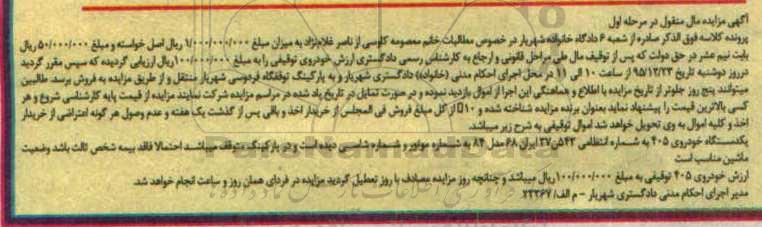 آگهی مزایده مال منقول در مرحله اول
پرونده کلاسه فوق الذکر صادره از شعبه ۶ دادگاه خانواده شهریار در خصوص مطالبات خانم معصومه کلوسی از ناصر غلام‌نژاد به میزان مبلغ ۱/۰۰۰/۰۰۰/۰۰۰ ریال اصل خواسته و مبلغ ۵۰/۰۰۰/۰۰۰ ریال
بابت نیم عشر در حق دولت که پس از توقیف مال طی مراحل قانونی و ارجاع به کارشناس رسمی دادگستری ارزش خودروی توقیفی را به مبلغ ۱۰۰/۰۰۰/۰۰۰ ریال ارزیابی گردیده که سپس مقرر گردید
در روز دوشنبه تاریخ ۹۵/۱۲/۲۳ از ساعت ۱۰ الی ۱۱ در محل اجرای احکام مدنی (خانواده) دادگستری شهریار و به پارکینگ توقفگاه فردوسی شهریار منتقل و از طریق مزایده به فروش برسد. طالبین
میتوانند پنج روز جلوتر از تاریخ مزایده با اطلاع و هماهنگی این اجرا از اموال بازدید نموده و در صورت تمایل در تاریخ یاد شده در مراسم مزایده شرکت نمایند مزایده از قیمت پایه کارشناسی شروع و هر
کسی بالاترین قیمت را پیشنهاد نماید بعنوان برنده مزایده شناخته شده و ۱۰٪ از کل مبلغ فروش فی المجلس از خریدار اخذ و باقی پس از گذشت یک هفته و عدم وصول هر گونه اعتراضی از خریدار
اخذ و کلیه اموال به وی تحویل خواهد شد اموال توقیفی به شرح زیر میباشد.
یکدستگاه خودروی ۴۰۵ به شماره انتظامی ۵۴۳ ن ۳۷ ایران ۶۸ مدل ۸۴ به شماره موتور و شماره شاسی دیده است و در پارکینگ متوقف میباشد احتمالا فاقد بیمه شخص ثالث باشد وضعیت
ماشین مناسب است
ارزش خودروی ۴۰۵ توقیفی به مبلغ ۱۰۰/۰۰۰/۰۰۰ ریال میباشد و چنانچه روز مزایده مصادف با روز تعطیل گردید مزایده در فردای همان روز و ساعت انجام خواهد شد.
مدیر اجرای احکام مدنی دادگستری شهریار - م الف/ ۲۳۲۶۷